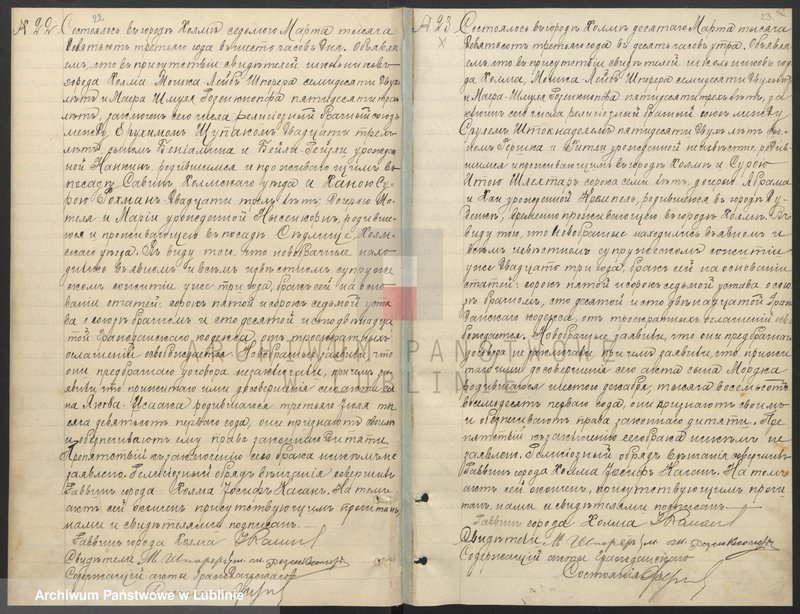 22
№ 22. Состоялось въ городѣ Холмѣ седьмого Марта тысяча
девятьсотъ третьяго года въ шесть часовъ дня. Объявля-
емъ, что въ присутствіи свидѣтелей школьниковъ
города Холма Мошка Лейбъ Шперера семидесяти двухъ
лѣтъ и Маера Шмуля пятидесяти трехъ
лѣтъ, заключенъ сего числа религіозный брачный союзъ
между двадцати трехъ
лѣтъ, сыномъ Беніамина и Бейлы Гейли урожден-
ной родившимся и проживающимъ въ
посадѣ Савинъ, Холмскаго уѣзда и Ханою Су-
рою двадцати лѣтъ, дочерью Мо-
теля и Маріи урожденной родившею-
юся и проживающею въ посадѣ Сѣдлище, Холм-
скаго уѣзда. Въ виду того, что новобрачные нахо-
дились въ явномъ и всѣмъ извѣстномъ супруже-
скомъ сожитіи уже три года, бракъ сей на осно-
ваніи статей: сорокъ пятой и сорокъ седьмой уста-
ва о союзѣ брачномъ и сто десятой и сто двѣнадца-
той Гражданскаго кодекса, отъ троекратныхъ
оглашеній освобождается. Новобрачные заявили, что
они предбрачнаго договора не заключали, причемъ за-
явили, что прижитаго ими до совершенія сего акта сы-
на Якова-Исаака родившагося третьяго Іюля ты-
сяча девятьсотъ перваго года, они признаютъ своимъ
и обезпечиваютъ ему права законнаго дитяти.
Препятствій къ заключенію сего брака никѣмъ не
заявлено. Религіозный обрядъ вѣнчанія совершилъ
Раввинъ города Холма Іосифъ Каганъ. На томъ
актъ сей оконченъ, присутствующимъ прочитанъ,
нами и свидѣтелями подписанъ. —
Раввинъ города Холма
Свидѣтели М. Шпереръ
Содержащій акты Гражданскаго
23
№ 23
Состоялось въ городѣ Холмѣ десятаго Марта тысяча
девятьсотъ третьяго года въ десять часовъ утра. Объявля-
емъ, что въ присутствіи свидѣтелей школьниковъ горо-
да Холма, Мошка Лейбъ Шперера семидесяти двухъ лѣтъ
и Маера-Шмуля пятидесяти трехъ лѣтъ, за-
ключенъ сего числа религіозный брачный союзъ между
Срулемъ пятидесяти двухъ лѣтъ, сы-
номъ Гершка и урожденной неизвѣстно, родив-
шимся и проживающимъ въ городѣ Холмѣ и Сурою
Итою Шлехтаръ сорока семи лѣтъ, дочерью Абрама
и Хаи урожденной родившеюся въ городѣ
временно проживающею въ городѣ Холмѣ. Въ
виду того, что новобрачные находились въ явномъ и
всѣмъ извѣстномъ супружескомъ сожитіи
уже двадцать три года, бракъ сей на основаніи
статей: сорокъ пятой и сорокъ седьмой устава о сою-
зѣ брачномъ, сто десятой и сто двѣнадцатой Граж-
данскаго кодекса, отъ троекратныхъ оглашеній осво-
бождается. Новобрачные заявили, что они предбрачнаго
договора не заключали, причемъ заявили, что прижи-
таго ими до совершенія сего акта сына Мордка
родившагося шестого декабря, тысяча восемьсотъ
восемьдесятъ перваго года, они признаютъ своимъ
и обезпечиваютъ права законнаго дитяти. Пре-
пятствій къ заключенію сего брака никѣмъ не
заявлено. Религіозный обрядъ вѣнчанія совершилъ
Раввинъ города Холма Іосифъ Каганъ. На томъ
актъ сей оконченъ, присутствующимъ прочи-
танъ, нами и свидѣтелями подписанъ. —
Раввинъ города Холма
Свидѣтели М. Шпереръ
Содержащій акты Гражданскаго
Состоянія
ARCHIWUM PAŃSTWOWE
W LUBLINIE
Archiwum Państwowe w Lublinie